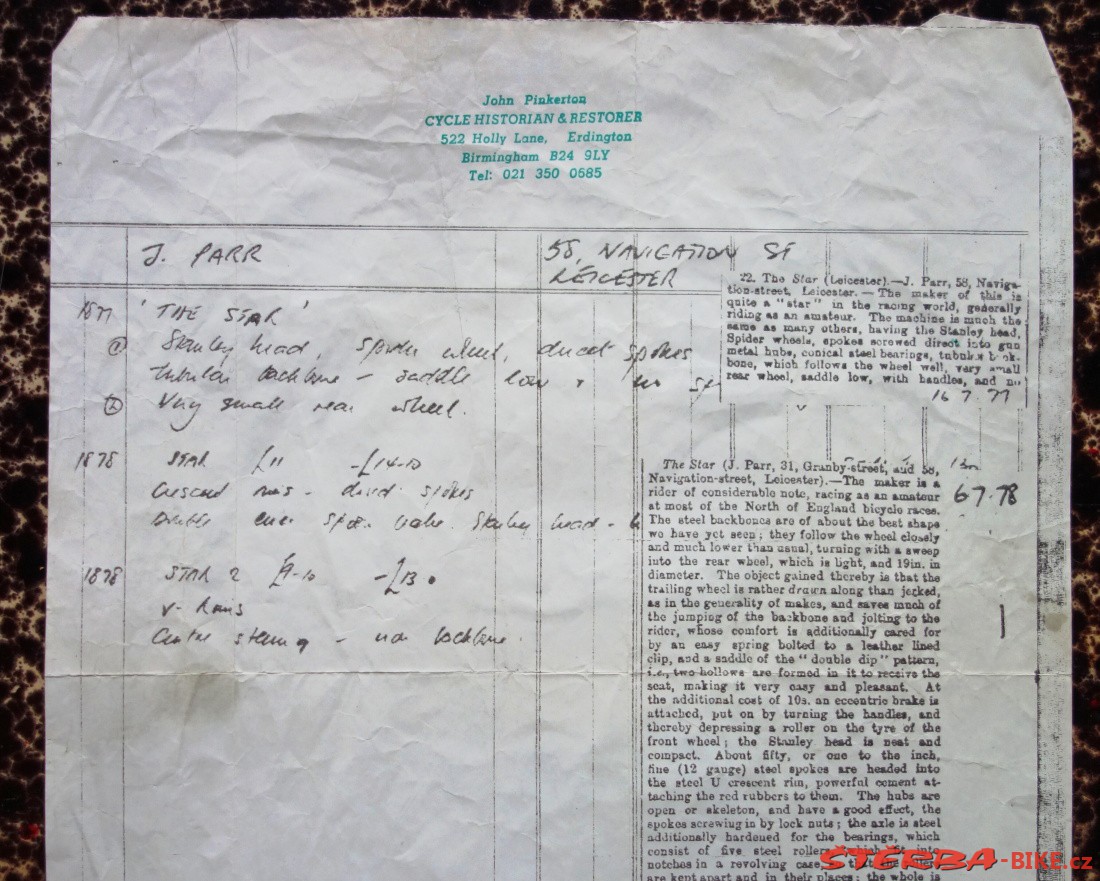 John Pinkerton
CYCLE HISTORIAN & RESTORER
522 Holly Lane, Erdington
Birmingham B24 9LY
Tel: 021 350 0585
J. PARR
58, NAVIGATION ST
LEICESTER
1877 'THE STAR'
Stanley head, spider wheel, direct spokes
tubular backbone - saddle low
Very small rear wheel.
1878 STAR £11 - £14-10
Crescent rims - direct spokes
Double Stanley head -
1878 STAR 2 £9-10 - £13
V- 
Centre steering - iron backbone.
22. The Star (Leicester).—J. Parr, 58, Naviga-
tion-street, Leicester.—The maker of this is
quite a "star" in the racing world, generally
riding as an amateur. The machine is much the
same as many others, having the Stanley head,
Spider wheels, spokes screwed direct into gun
metal hubs, conical steel bearings, tubular back-
bone, which follows the wheel well, very small
rear wheel, saddle low, with handles, and
16 7. 77
The Star (J. Parr, 31, Granby-street, and 58,
Navigation-street, Leicester).—The maker is a
rider of considerable note, racing as an amateur
at most of the North of England bicycle races.
The steel backbones are of about the best shape
we have yet seen; they follow the wheel closely
and much lower than usual, turning with a sweep
into the rear wheel, which is light, and 19in. in
diameter. The object gained thereby is that the
trailing wheel is rather drawn along than jerked,
as in the generality of makes, and saves much of
the jumping of the backbone and jolting to the
rider, whose comfort is additionally cared for
by an easy spring bolted to a leather lined
clip, and a saddle of the "double dip" pattern,
i.e., two hollows are formed in it to receive the
seat, making it very easy and pleasant. At
the additional cost of 10s. an eccentric brake is
attached, put on by turning the handles, and
thereby depressing a roller on the tyre of the
front wheel; the Stanley head is neat and
compact. About fifty, or one to the inch,
fine (12 gauge) steel spokes are headed into
the steel U crescent rim, powerful cement at-
taching the red rubbers to them. The hubs are
open or skeleton, and have a good effect, the
spokes screwing in by lock nuts; the axle is steel
additionally hardened for the bearings, which
consist of five steel rollers, which fit into
notches in a revolving case,
are kept apart and in their places; the whole is
6 7. 78
ŠTERBA-BIKE.cz